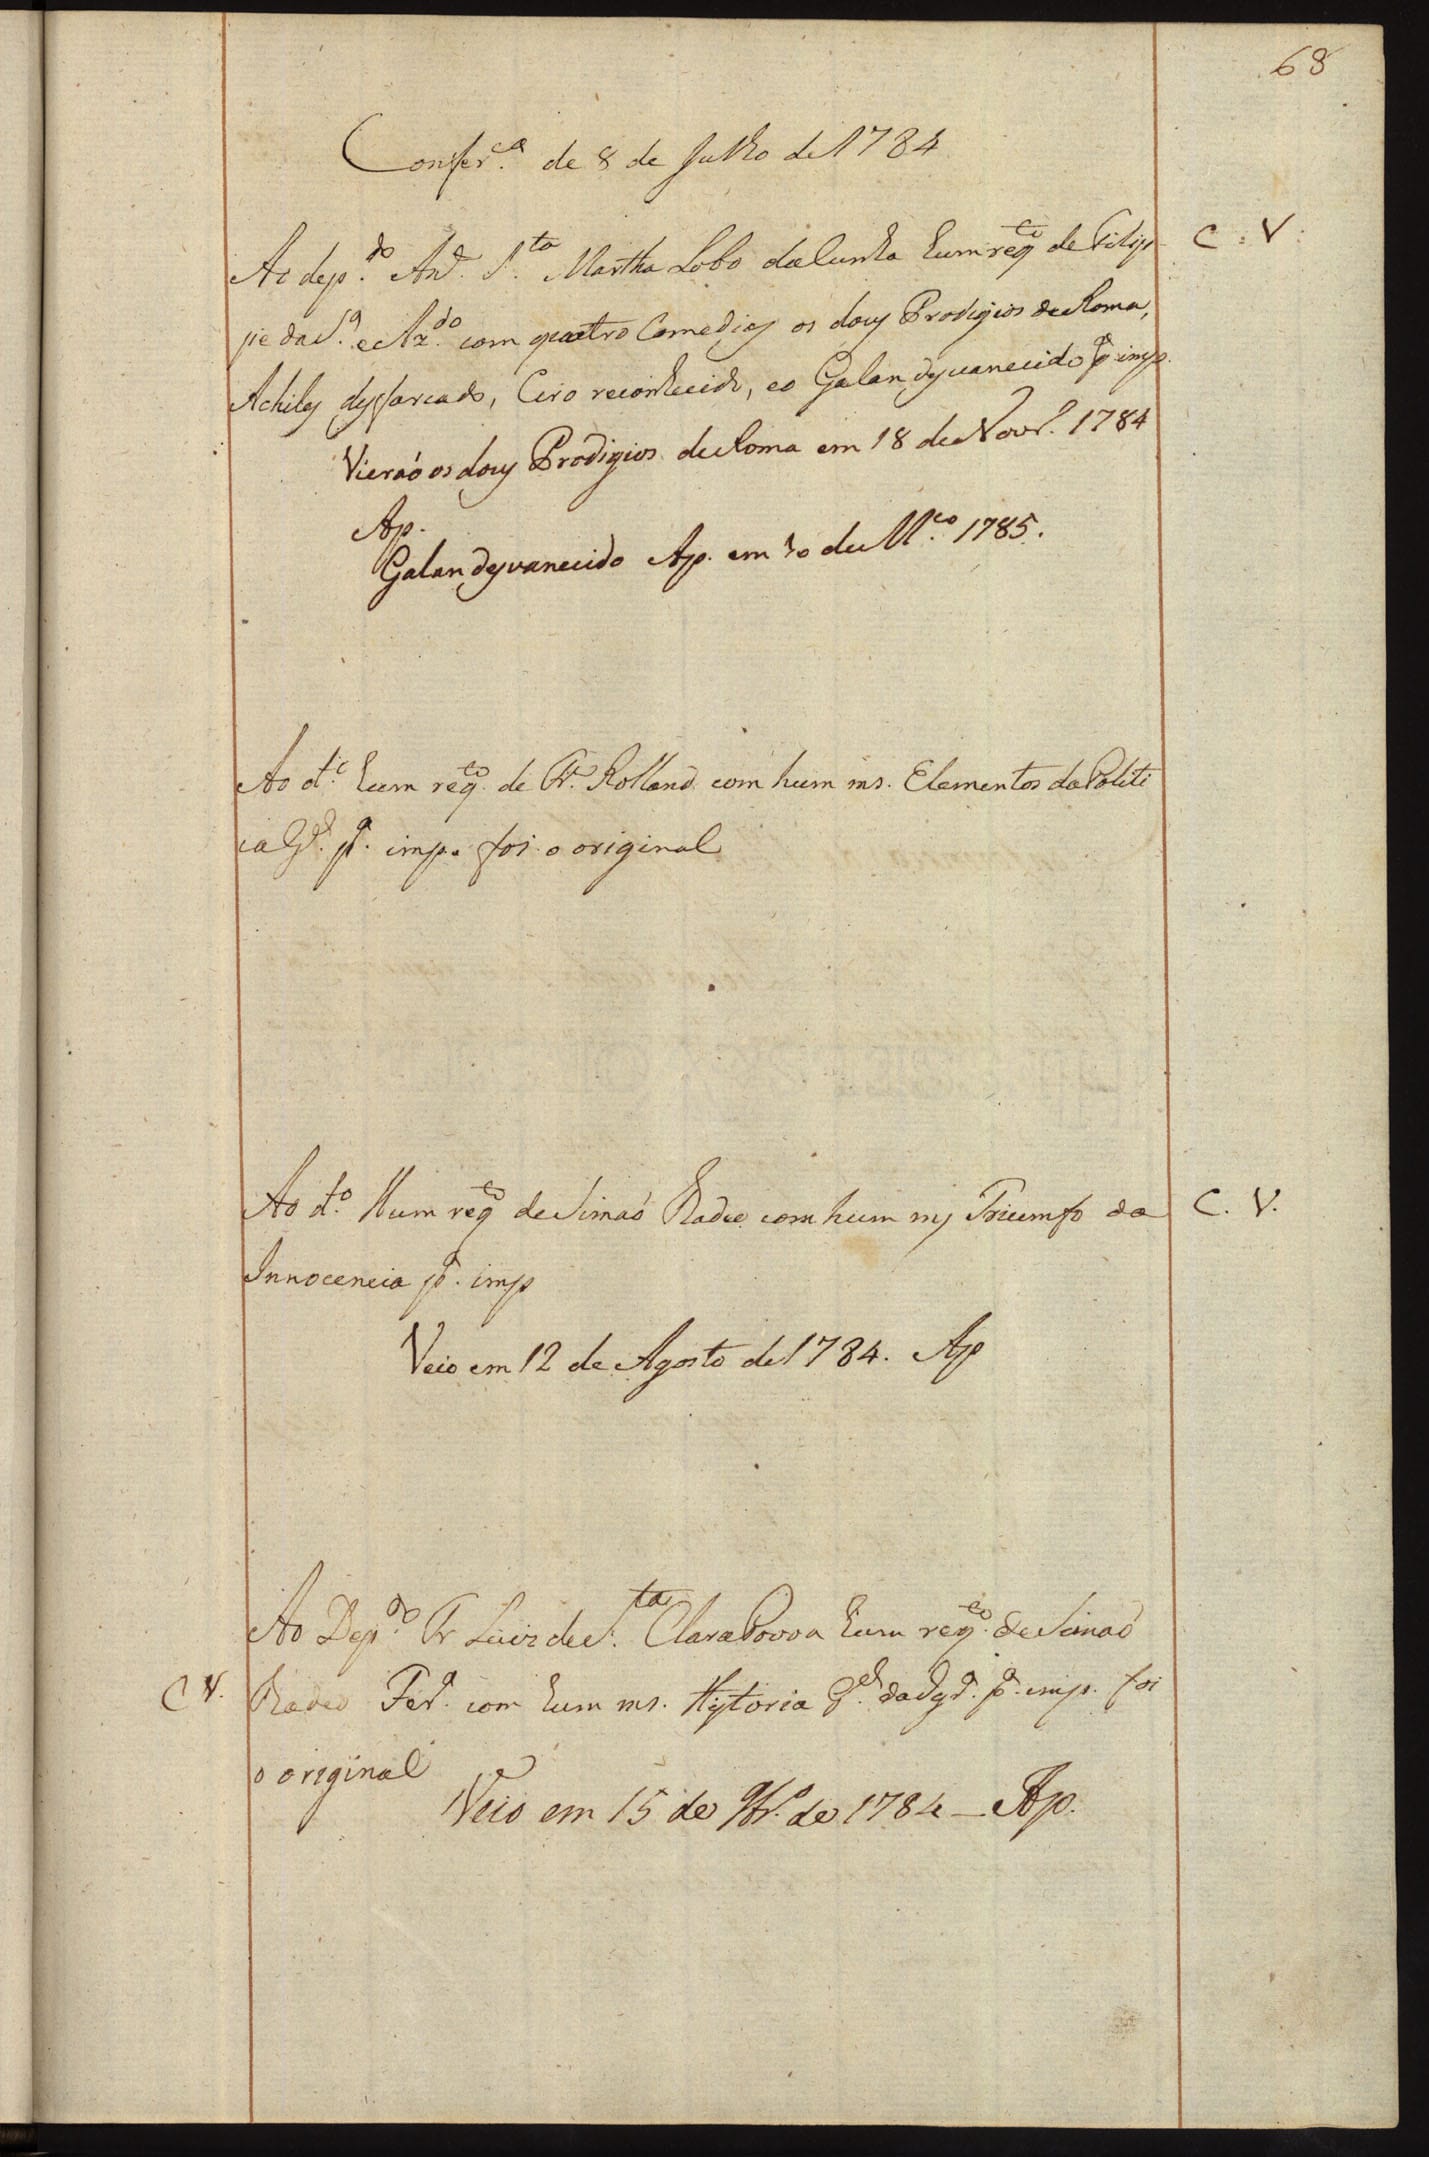 68
Confer.ca de 8 de Julho de 1784
Ao dep.do Ant. S.ta Martha Lobo da Cunha hum req.to de Filip C. V.
pe da S.a e Az.do com quatro Comedias os dous Prodigios de Roma,
Achiles desfarcado, Ciro reconhecido, e o Galan desvanecido p.a imp.
Vieraõ os dous Prodigios de Roma em 18 de Novr.o 1784
Ap.
Galan desvanecido Ap. em 10 de M.co 1785.
Ao d.o hum req.to de Fr. Rolland com hum ms. Elementos da Politi
ca G.l p.a imp. foi o original
Ao d.o Hum req.to de Simaõ Thadeo com hum ms Triumfo da C. V.
Innocencia p.a imp
Veio em 12 de Agosto de 1784. Ap
Ao Dep.do Fr Luiz de S.ta Clara Povoa hum req.to de Simaõ
C V. Thadeo Fer.a com hum ms. Historia G.l da Igr.a p.a imp. foi
o original
Veio em 15 de 9br.o de 1784 — Ap.